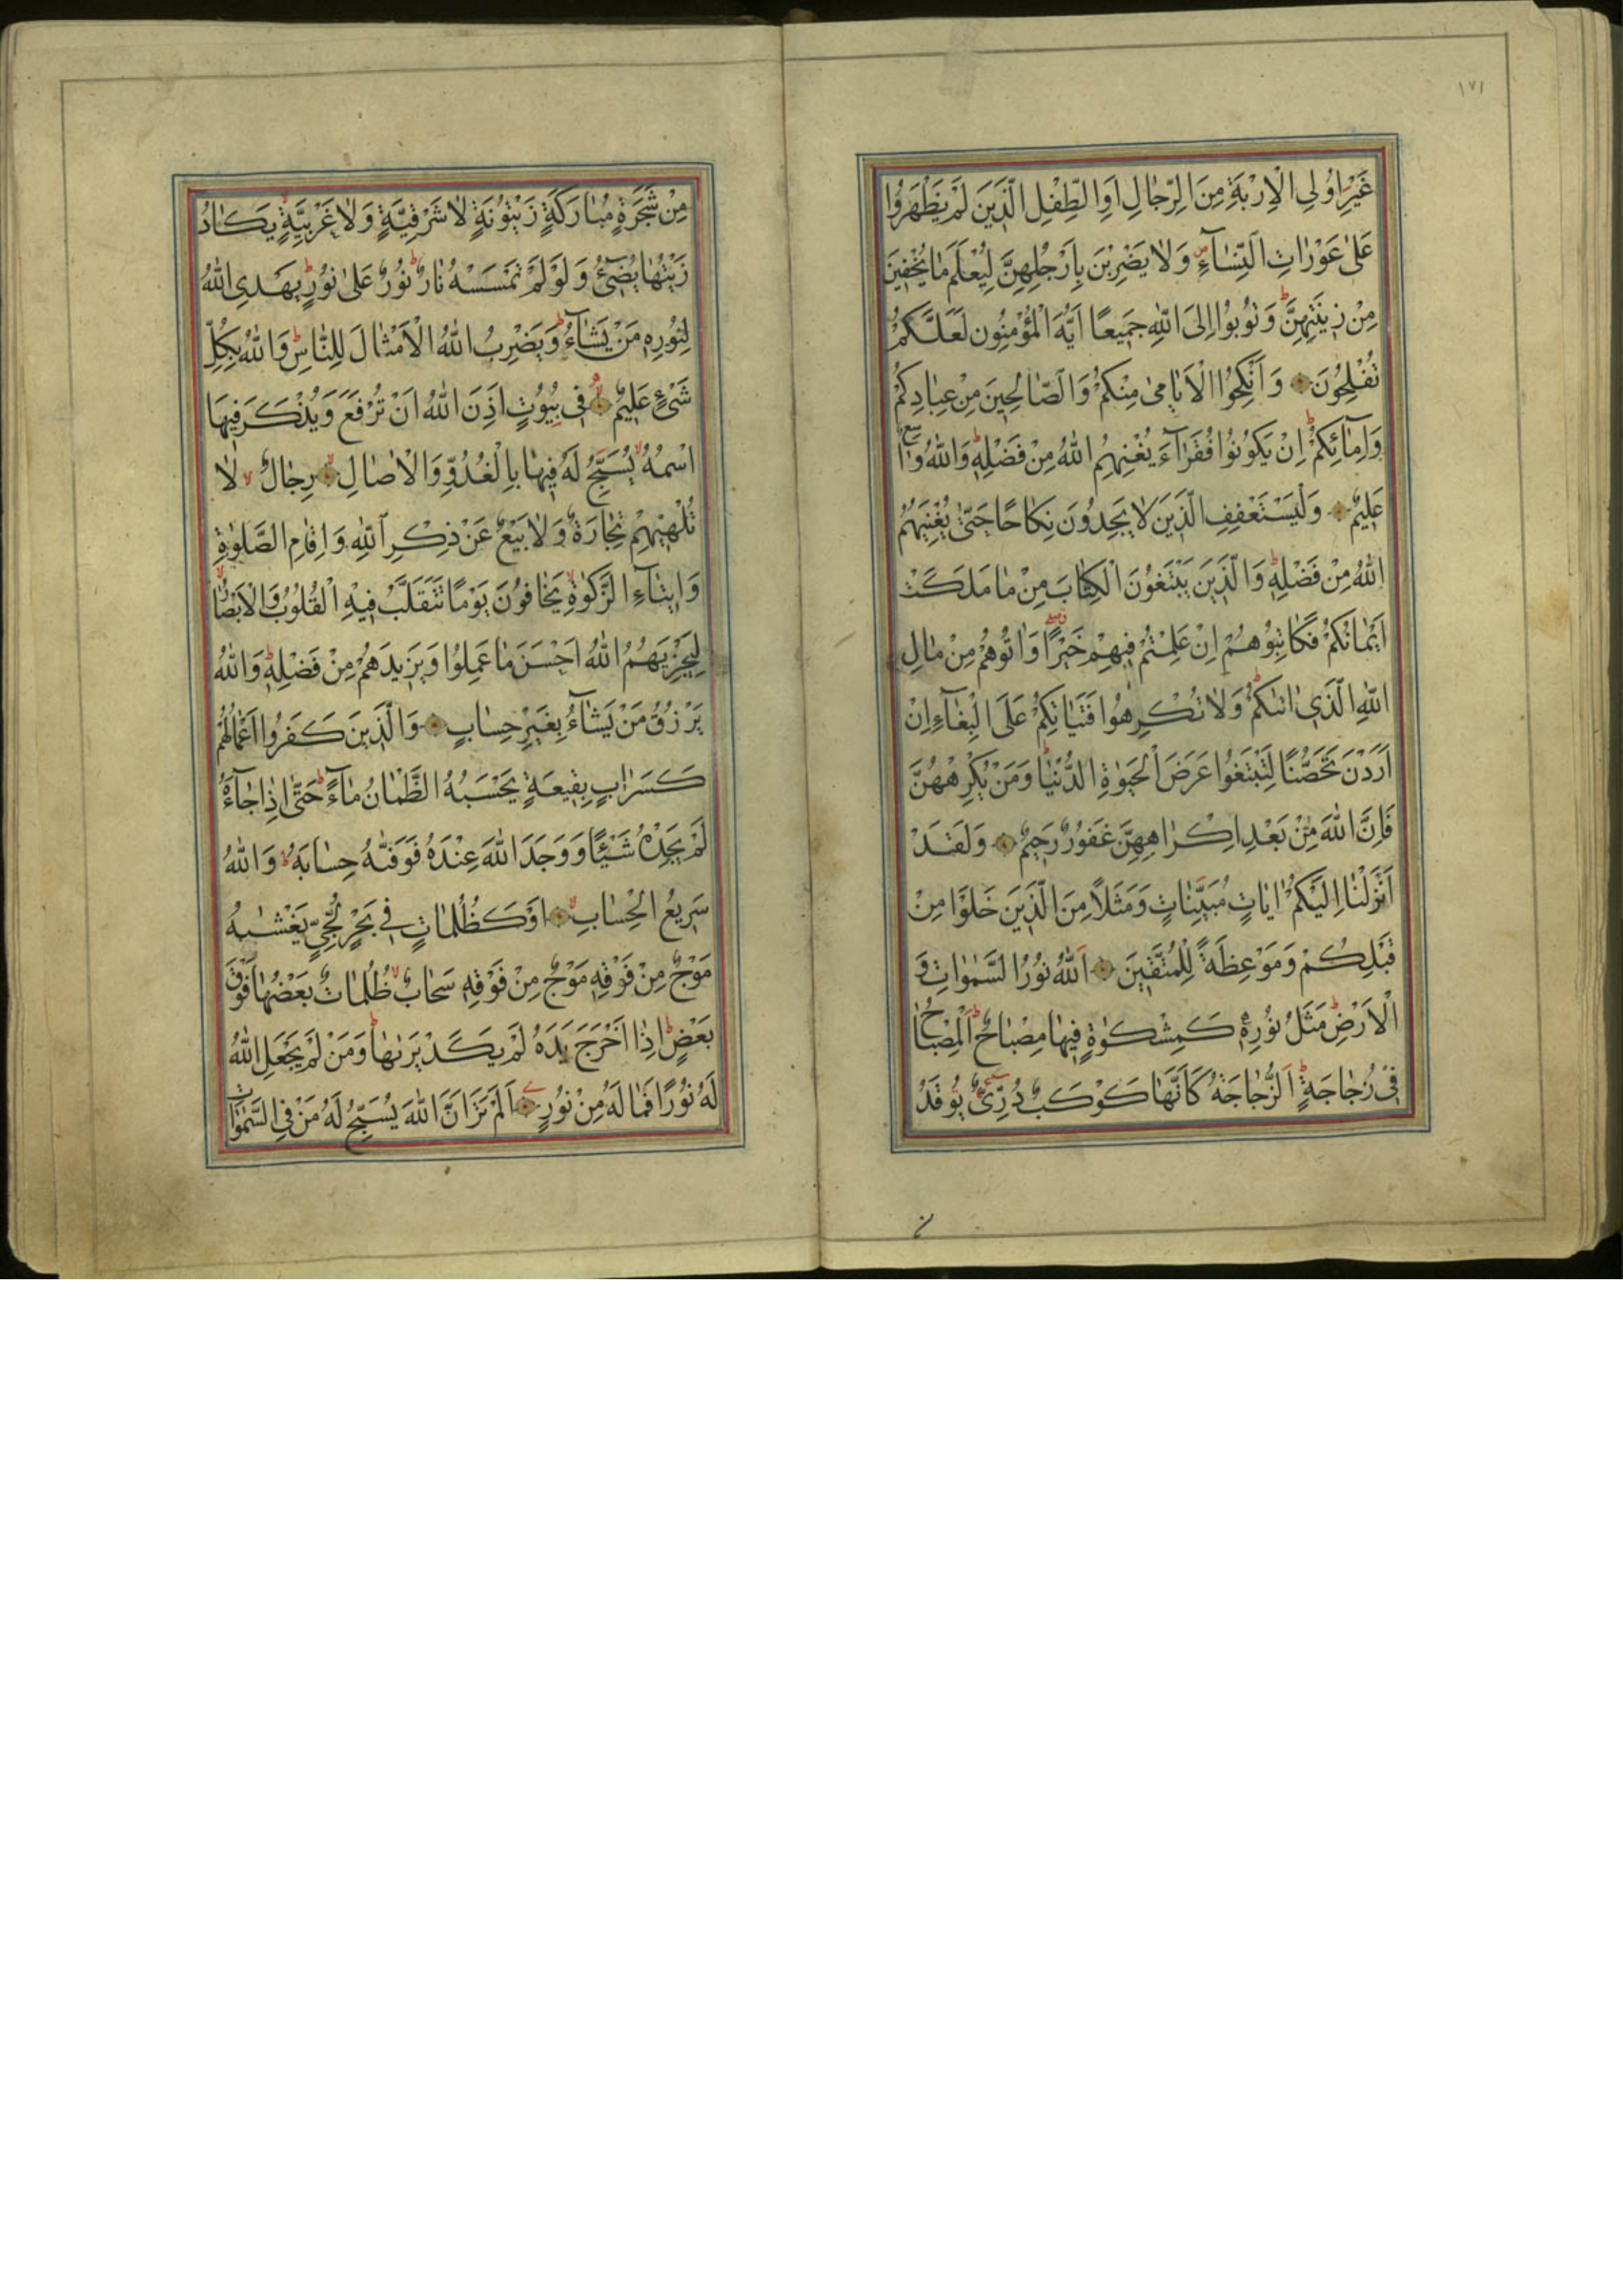 ١٧١
غَيْرِ اُولِي الْاِرْبَةِ مِنَ الرِّجَالِ اَوِ الطِّفْلِ الَّذِينَ لَمْ يَظْهَرُوا
عَلٰى عَوْرَاتِ النِّسَآءِ وَلَا يَضْرِبْنَ بِاَرْجُلِهِنَّ لِيُعْلَمَ مَا يُخْفِينَ
مِنْ زِينَتِهِنَّ وَتُوبُوا اِلَى اللّٰهِ جَمِيعًا اَيُّهَ الْمُؤْمِنُونَ لَعَلَّكُمْ
تُفْلِحُونَ وَاَنْكِحُوا الْاَيَامٰى مِنْكُمْ وَالصَّالِحِينَ مِنْ عِبَادِكُمْ
وَاِمَائِكُمْ اِنْ يَكُونُوا فُقَرَآءَ يُغْنِهِمُ اللّٰهُ مِنْ فَضْلِهِ وَاللّٰهُ وَاسِعٌ
عَلِيمٌ وَلْيَسْتَعْفِفِ الَّذِينَ لَا يَجِدُونَ نِكَاحًا حَتّٰى يُغْنِيَهُمُ
اللّٰهُ مِنْ فَضْلِهِ وَالَّذِينَ يَبْتَغُونَ الْكِتَابَ مِنْ مَا مَلَكَتْ
اَيْمَانُكُمْ فَكَاتِبُوهُمْ اِنْ عَلِمْتُمْ فِيهِمْ خَيْرًا وَاٰتُوهُمْ مِنْ مَالِ
اللّٰهِ الَّذِي اٰتٰىكُمْ وَلَا تُكْرِهُوا فَتَيَاتِكُمْ عَلَى الْبِغَآءِ اِنْ
اَرَدْنَ تَحَصُّنًا لِتَبْتَغُوا عَرَضَ الْحَيٰوةِ الدُّنْيَا وَمَنْ يُكْرِهْهُنَّ
فَاِنَّ اللّٰهَ مِنْ بَعْدِ اِكْرَاهِهِنَّ غَفُورٌ رَحِيمٌ وَلَقَدْ
اَنْزَلْنَا اِلَيْكُمْ اٰيَاتٍ مُبَيِّنَاتٍ وَمَثَلًا مِنَ الَّذِينَ خَلَوْا مِنْ
قَبْلِكُمْ وَمَوْعِظَةً لِلْمُتَّقِينَ اَللّٰهُ نُورُ السَّمٰوَاتِ وَ
الْاَرْضِ مَثَلُ نُورِهِ كَمِشْكٰوةٍ فِيهَا مِصْبَاحٌ اَلْمِصْبَاحُ
فِي زُجَاجَةٍ اَلزُّجَاجَةُ كَاَنَّهَا كَوْكَبٌ دُرِّيٌّ يُوقَدُ
مِنْ شَجَرَةٍ مُبَارَكَةٍ زَيْتُونَةٍ لَا شَرْقِيَّةٍ وَلَا غَرْبِيَّةٍ يَكَادُ
زَيْتُهَا يُضِيٓءُ وَلَوْ لَمْ تَمْسَسْهُ نَارٌ نُورٌ عَلٰى نُورٍ يَهْدِي اللّٰهُ
لِنُورِهِ مَنْ يَشَآءُ وَيَضْرِبُ اللّٰهُ الْاَمْثَالَ لِلنَّاسِ وَاللّٰهُ بِكُلِّ
شَيْءٍ عَلِيمٌ فِي بُيُوتٍ اَذِنَ اللّٰهُ اَنْ تُرْفَعَ وَيُذْكَرَ فِيهَا
اسْمُهُ يُسَبِّحُ لَهُ فِيهَا بِالْغُدُوِّ وَالْاٰصَالِ رِجَالٌ لَا
تُلْهِيهِمْ تِجَارَةٌ وَلَا بَيْعٌ عَنْ ذِكْرِ اللّٰهِ وَاِقَامِ الصَّلٰوةِ
وَاِيتَآءِ الزَّكٰوةِ يَخَافُونَ يَوْمًا تَتَقَلَّبُ فِيهِ الْقُلُوبُ وَالْاَبْصَارُ
لِيَجْزِيَهُمُ اللّٰهُ اَحْسَنَ مَا عَمِلُوا وَيَزِيدَهُمْ مِنْ فَضْلِهِ وَاللّٰهُ
يَرْزُقُ مَنْ يَشَآءُ بِغَيْرِ حِسَابٍ وَالَّذِينَ كَفَرُوا اَعْمَالُهُمْ
كَسَرَابٍ بِقِيعَةٍ يَحْسَبُهُ الظَّمْاٰنُ مَآءً حَتّٰى اِذَا جَآءَهُ
لَمْ يَجِدْهُ شَيْئًا وَوَجَدَ اللّٰهَ عِنْدَهُ فَوَفّٰىهُ حِسَابَهُ وَاللّٰهُ
سَرِيعُ الْحِسَابِ اَوْ كَظُلُمَاتٍ فِي بَحْرٍ لُجِّيٍّ يَغْشٰىهُ
مَوْجٌ مِنْ فَوْقِهِ مَوْجٌ مِنْ فَوْقِهِ سَحَابٌ ظُلُمَاتٌ بَعْضُهَا فَوْقَ
بَعْضٍ اِذَا اَخْرَجَ يَدَهُ لَمْ يَكَدْ يَرٰىهَا وَمَنْ لَمْ يَجْعَلِ اللّٰهُ
لَهُ نُورًا فَمَا لَهُ مِنْ نُورٍ اَلَمْ تَرَ اَنَّ اللّٰهَ يُسَبِّحُ لَهُ مَنْ فِي السَّمٰوَاتِ